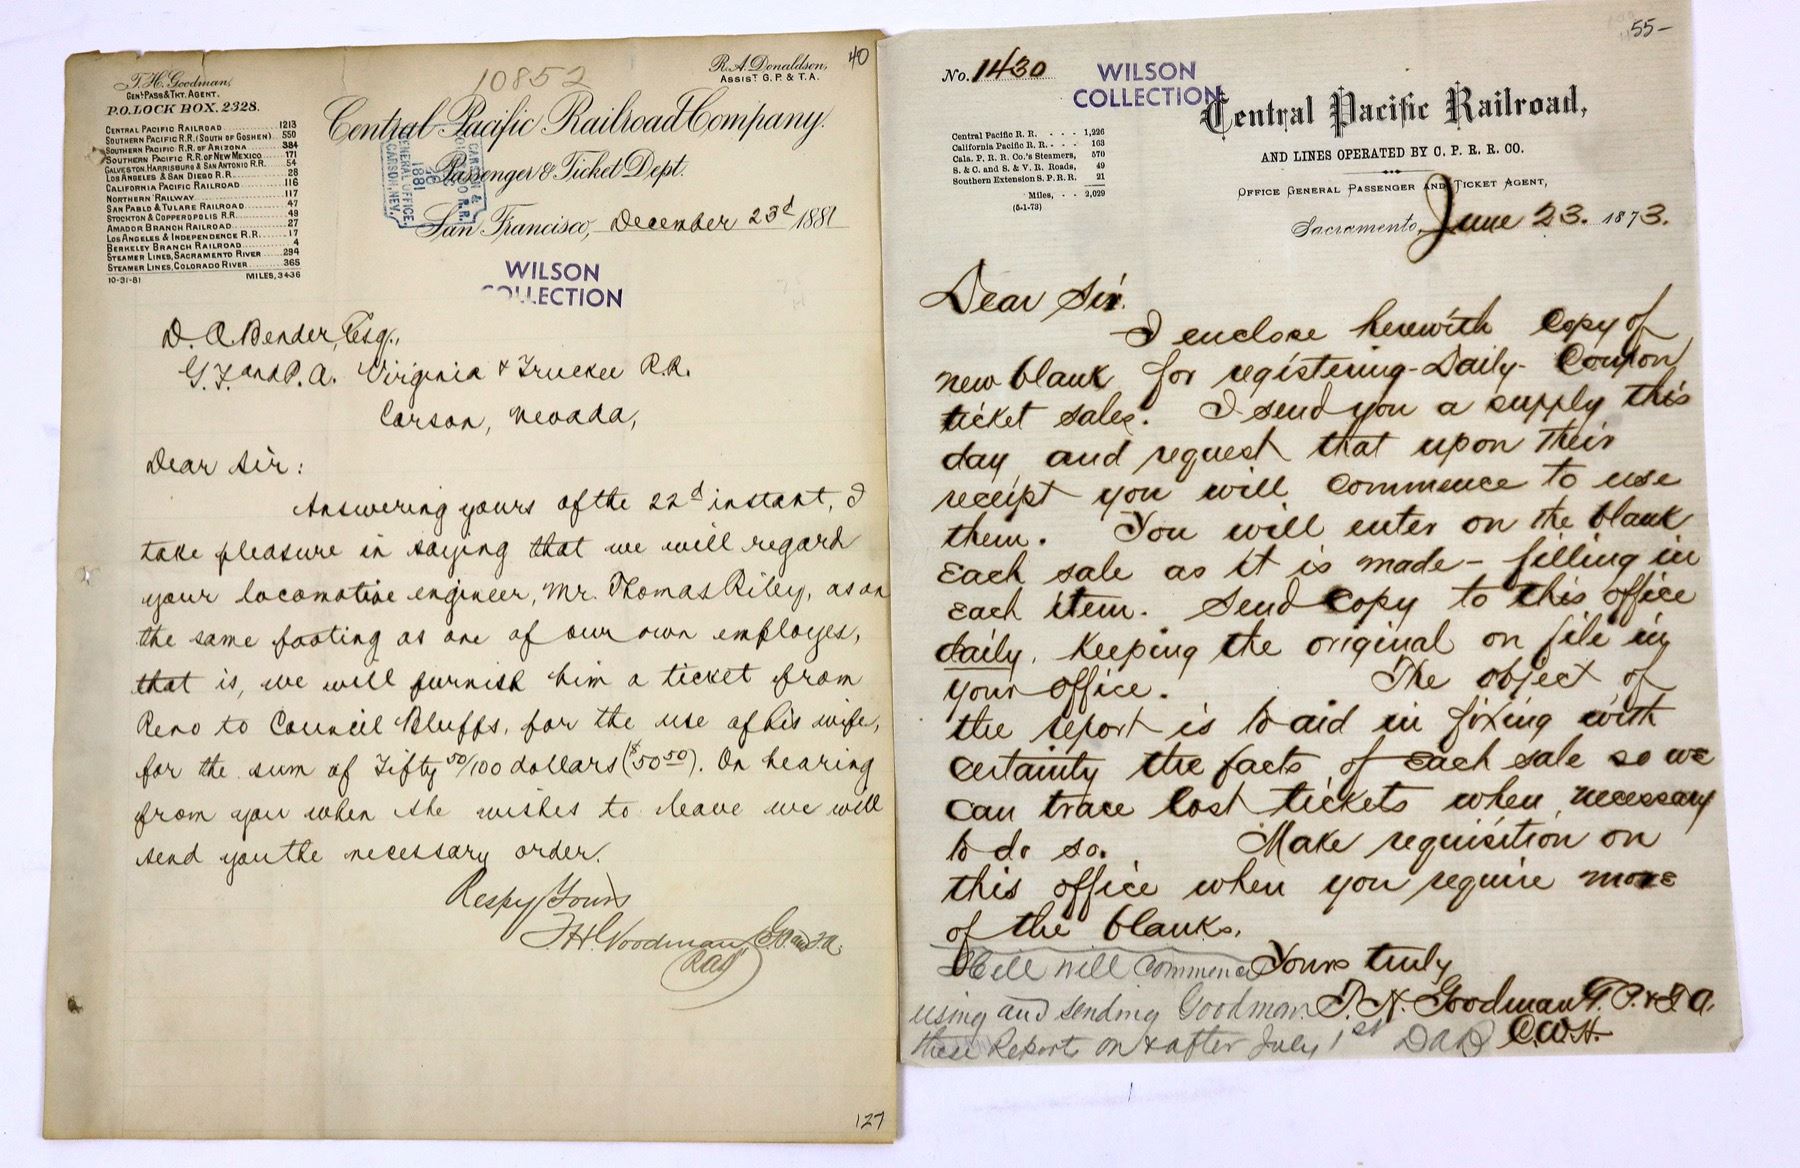 40
T. H. Goodman,
GEN'L PASS & TKT. AGENT.
P.O. LOCK BOX. 2328.
10852
R. A. Donaldson,
ASSIST G. P. & T. A.
CENTRAL PACIFIC RAILROAD 1213
SOUTHERN PACIFIC R.R. (SOUTH OF GOSHEN) 550
SOUTHERN PACIFIC R.R. OF ARIZONA 384
SOUTHERN PACIFIC R.R. OF NEW MEXICO 171
GALVESTON, HARRISBURG & SAN ANTONIO R.R. 54
LOS ANGELES & SAN DIEGO R.R. 28
CALIFORNIA PACIFIC RAILROAD 116
NORTHERN RAILWAY 117
SAN PABLO & TULARE RAILROAD 47
STOCKTON & COPPEROPOLIS R.R. 49
AMADOR BRANCH RAILROAD 27
LOS ANGELES & INDEPENDENCE R.R. 17
BERKELEY BRANCH RAILROAD 4
STEAMER LINES, SACRAMENTO RIVER 294
STEAMER LINES, COLORADO RIVER 365
10-31-81 MILES, 3436
Central Pacific Railroad Company.
Passenger & Ticket Dept.
GENERAL OFFICE,
CARSON, NEV.
26
1881
San Francisco, December 23d 1881
WILSON
COLLECTION
D. A. Bender, Esq.,
G. T. and P. A. Virginia & Truckee R.R.
Carson, Nevada,
Dear Sir:
Answering yours of the 22d instant, I
take pleasure in saying that we will regard
your locomotive engineer, Mr. Thomas Riley, as on
the same footing as one of our own employes,
that is, we will furnish him a ticket from
Reno to Council Bluffs, for the use of his wife,
for the sum of Fifty 50/100 dollars ($50 50). On hearing
from you when she wishes to leave we will
send you the necessary order.
Respy Yours
T H Goodman G. P. and T. A.
RAD
127
55-
No. 1430
WILSON
COLLECTION
Central Pacific Railroad,
AND LINES OPERATED BY C. P. R. R. CO.
OFFICE GENERAL PASSENGER AND TICKET AGENT,
Central Pacific R. R. - - - 1,226
California Pacific R. R. - - - 163
Cala. P. R. R. Co.'s Steamers, 570
S. & C. and S. & V. R. Roads, 49
Southern Extension S. P. R. R. 21
Miles, - - 2,029
(5-1-73)
Sacramento, June 23. 1873.
Dear Sir.
I enclose herewith Copy of
new blank for registering - Daily - Coupon
ticket sales. I send you a supply this
day and request that upon their
receipt you will commence to use
them. You will enter on the blank
each sale as it is made - filling in
each item. Send Copy to this office
daily, keeping the original on file in
your office. The object of
the report is to aid in fixing with
certainty the facts of each sale so we
can trace lost tickets when necessary
to do so. Make requisition on
this office when you require more
of the blanks.
Yours truly
T. H. Goodman G. P. & T A.
C.W.H.
will commence
using and sending Goodman
these Reports on & after July 1st DAB